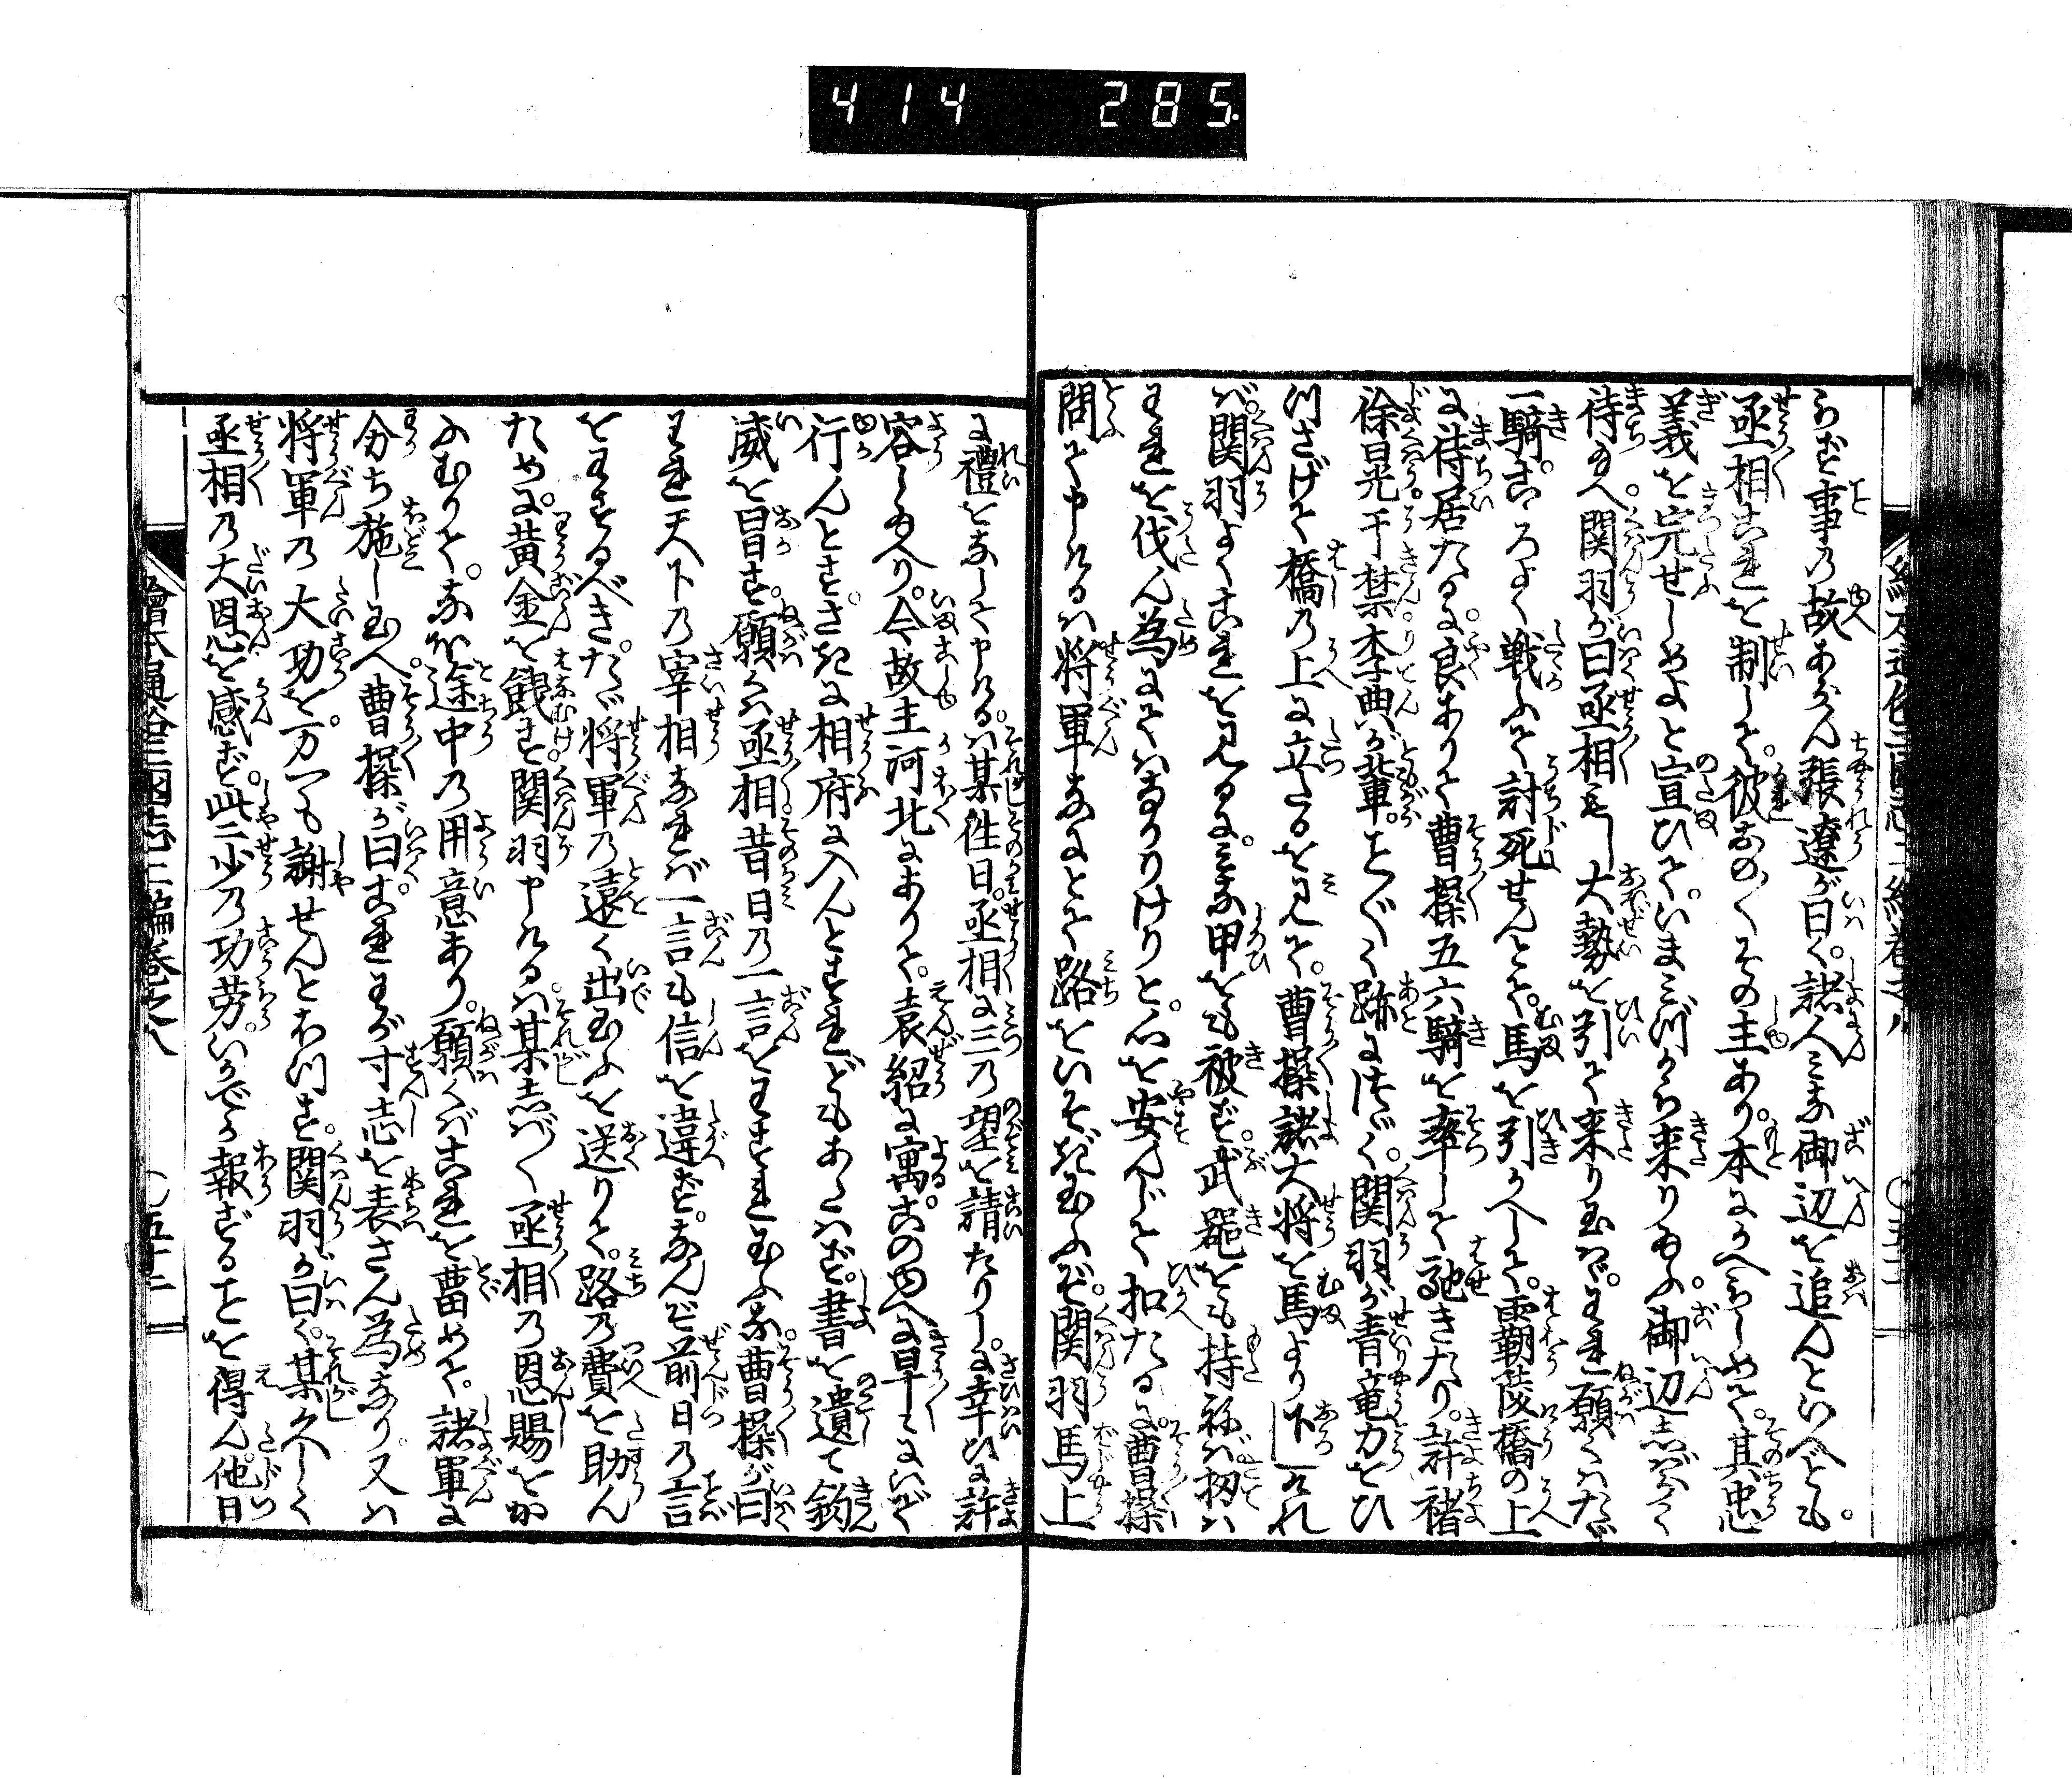 414 285.
らず事乃故あらん張遼が曰く諸人ミな御辺を追んといへども。
丞相これを制して。彼おの〱その主あり。本にかへらしめて。其忠
義を完せしめよと宣ひて。いまミづから来り給ふ。御辺志ばらく
待給へ。関羽が曰丞相もし大勢を引て来り玉はゞ。われ願くハたゞ
一騎。こゝろよく戦ふて討死せんとて。馬を引かへして。覇陵橋の上
に待居たるに。良ありて曹操五六騎を率して馳きたり。許褚
徐晃于禁李典が輩。こと〲く跡につゞく。関羽が青竜刀をひ
つさげて橋乃上に立たるを見て。曹操諸大将を馬より下しけれ
バ。関羽よくこれを見るに。ミな甲をも被ず。武器をも持ねバ扨ハ
われを伐ん為にてハなかりけりと。心を安んじて扣たるに。曹操
問て申けるハ将軍なにとて路をいそぎ玉ふぞ。関羽馬上
に禮をなして申けるハ。某徃日。丞相に三乃望を請たりしに幸ひに許
容し給へり。今故主河北にありて。袁紹に寓。このゆへに早〻にいで
行んとす。さきに相府に入んとすれどもあたハず。書を遺て鈞
威を冒す。願くハ丞相。昔日乃一言をわすれ玉ふな。曹操が曰
われ天下乃宰相なれバ一言も信を違ず。なんぞ前日乃言
をわするべき。たゞ将軍乃遠く出玉ふを送りて。路乃費を助ん
ために。黄金を餞す。関羽申けるハ。某志ば〱丞相乃恩賜をか
ふむりて。なを途中乃用意あり。願くバこれを畱めて。諸軍に
分ち施し玉へ。曹操が曰。これわが寸志を表さん為なり。又ハ
将軍乃大功を。万一も謝せんとおつす。関羽が曰く。某久しく
丞相乃大恩を感ず。此二少乃功労。いかでか報ずることを得ん。他日
繪本通俗三國志二編巻之八 〇五十二